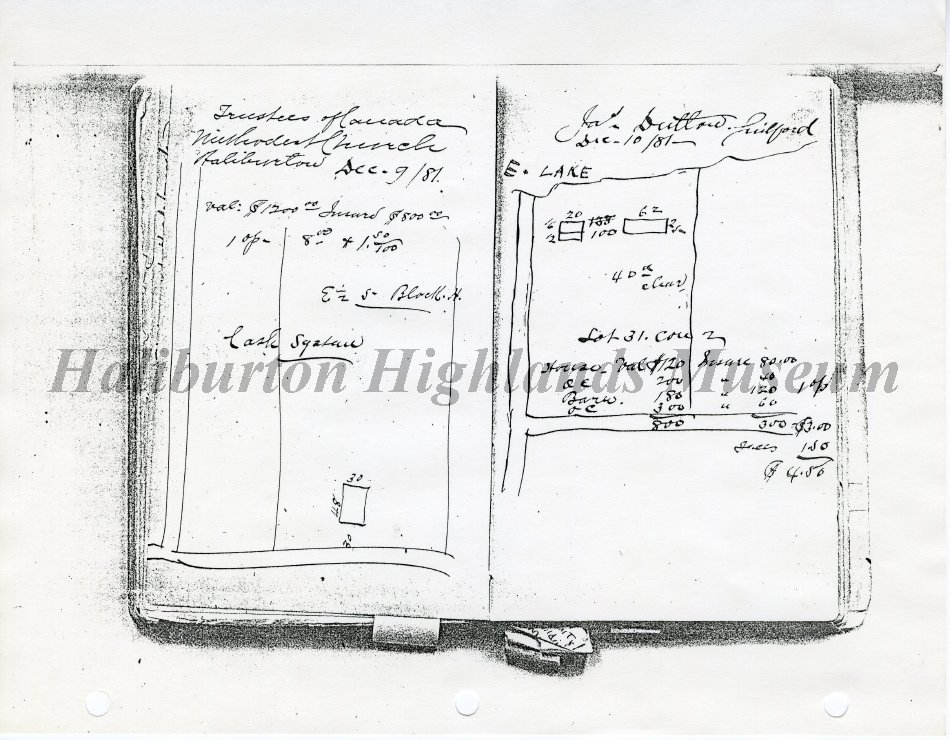 Trustees of Canada
Methodist Church
Haliburton Dec. 9/81.
Val: $1200 00 Insurd $800 00
1 op- 8 00 & 1. 50/100
E ½ 5- Block. H.
Cash System
30
45
30
Jas. Dutton. Guilford
Dec- 10/81-
E. LAKE
20
62
100
40 a
clear
Lot 31. Con 2
House Val $120 Insure 80.00
O C 200 "
Barn. 180 " 120 1 op
O C 300 " 60
800 300 $3.00
Fees 1.50
$ 4.50
Haliburton Highlands Museum